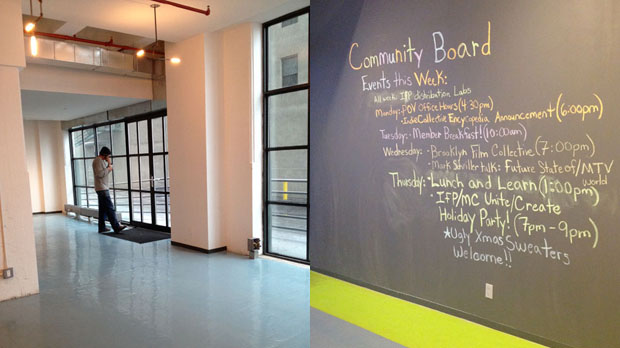 Community Board
Events this Week:
All week: IFP distribution Labs
Monday: POV Office Hours (4:30pm)
• IndieCollective Encyclopedia Announcement (6:00pm)
Tuesday: - Member Breakfast! (10:00am)
Wednesday: - Brooklyn Film Collective (7:00pm)
- Mark talk: Future State of/MTV
World
Thursday: • Lunch and Learn (1:00pm)
• IFP/MC Unite/Create
Holiday Party! (7pm-9pm)
*Ugly Xmas Sweaters
Welcome!!